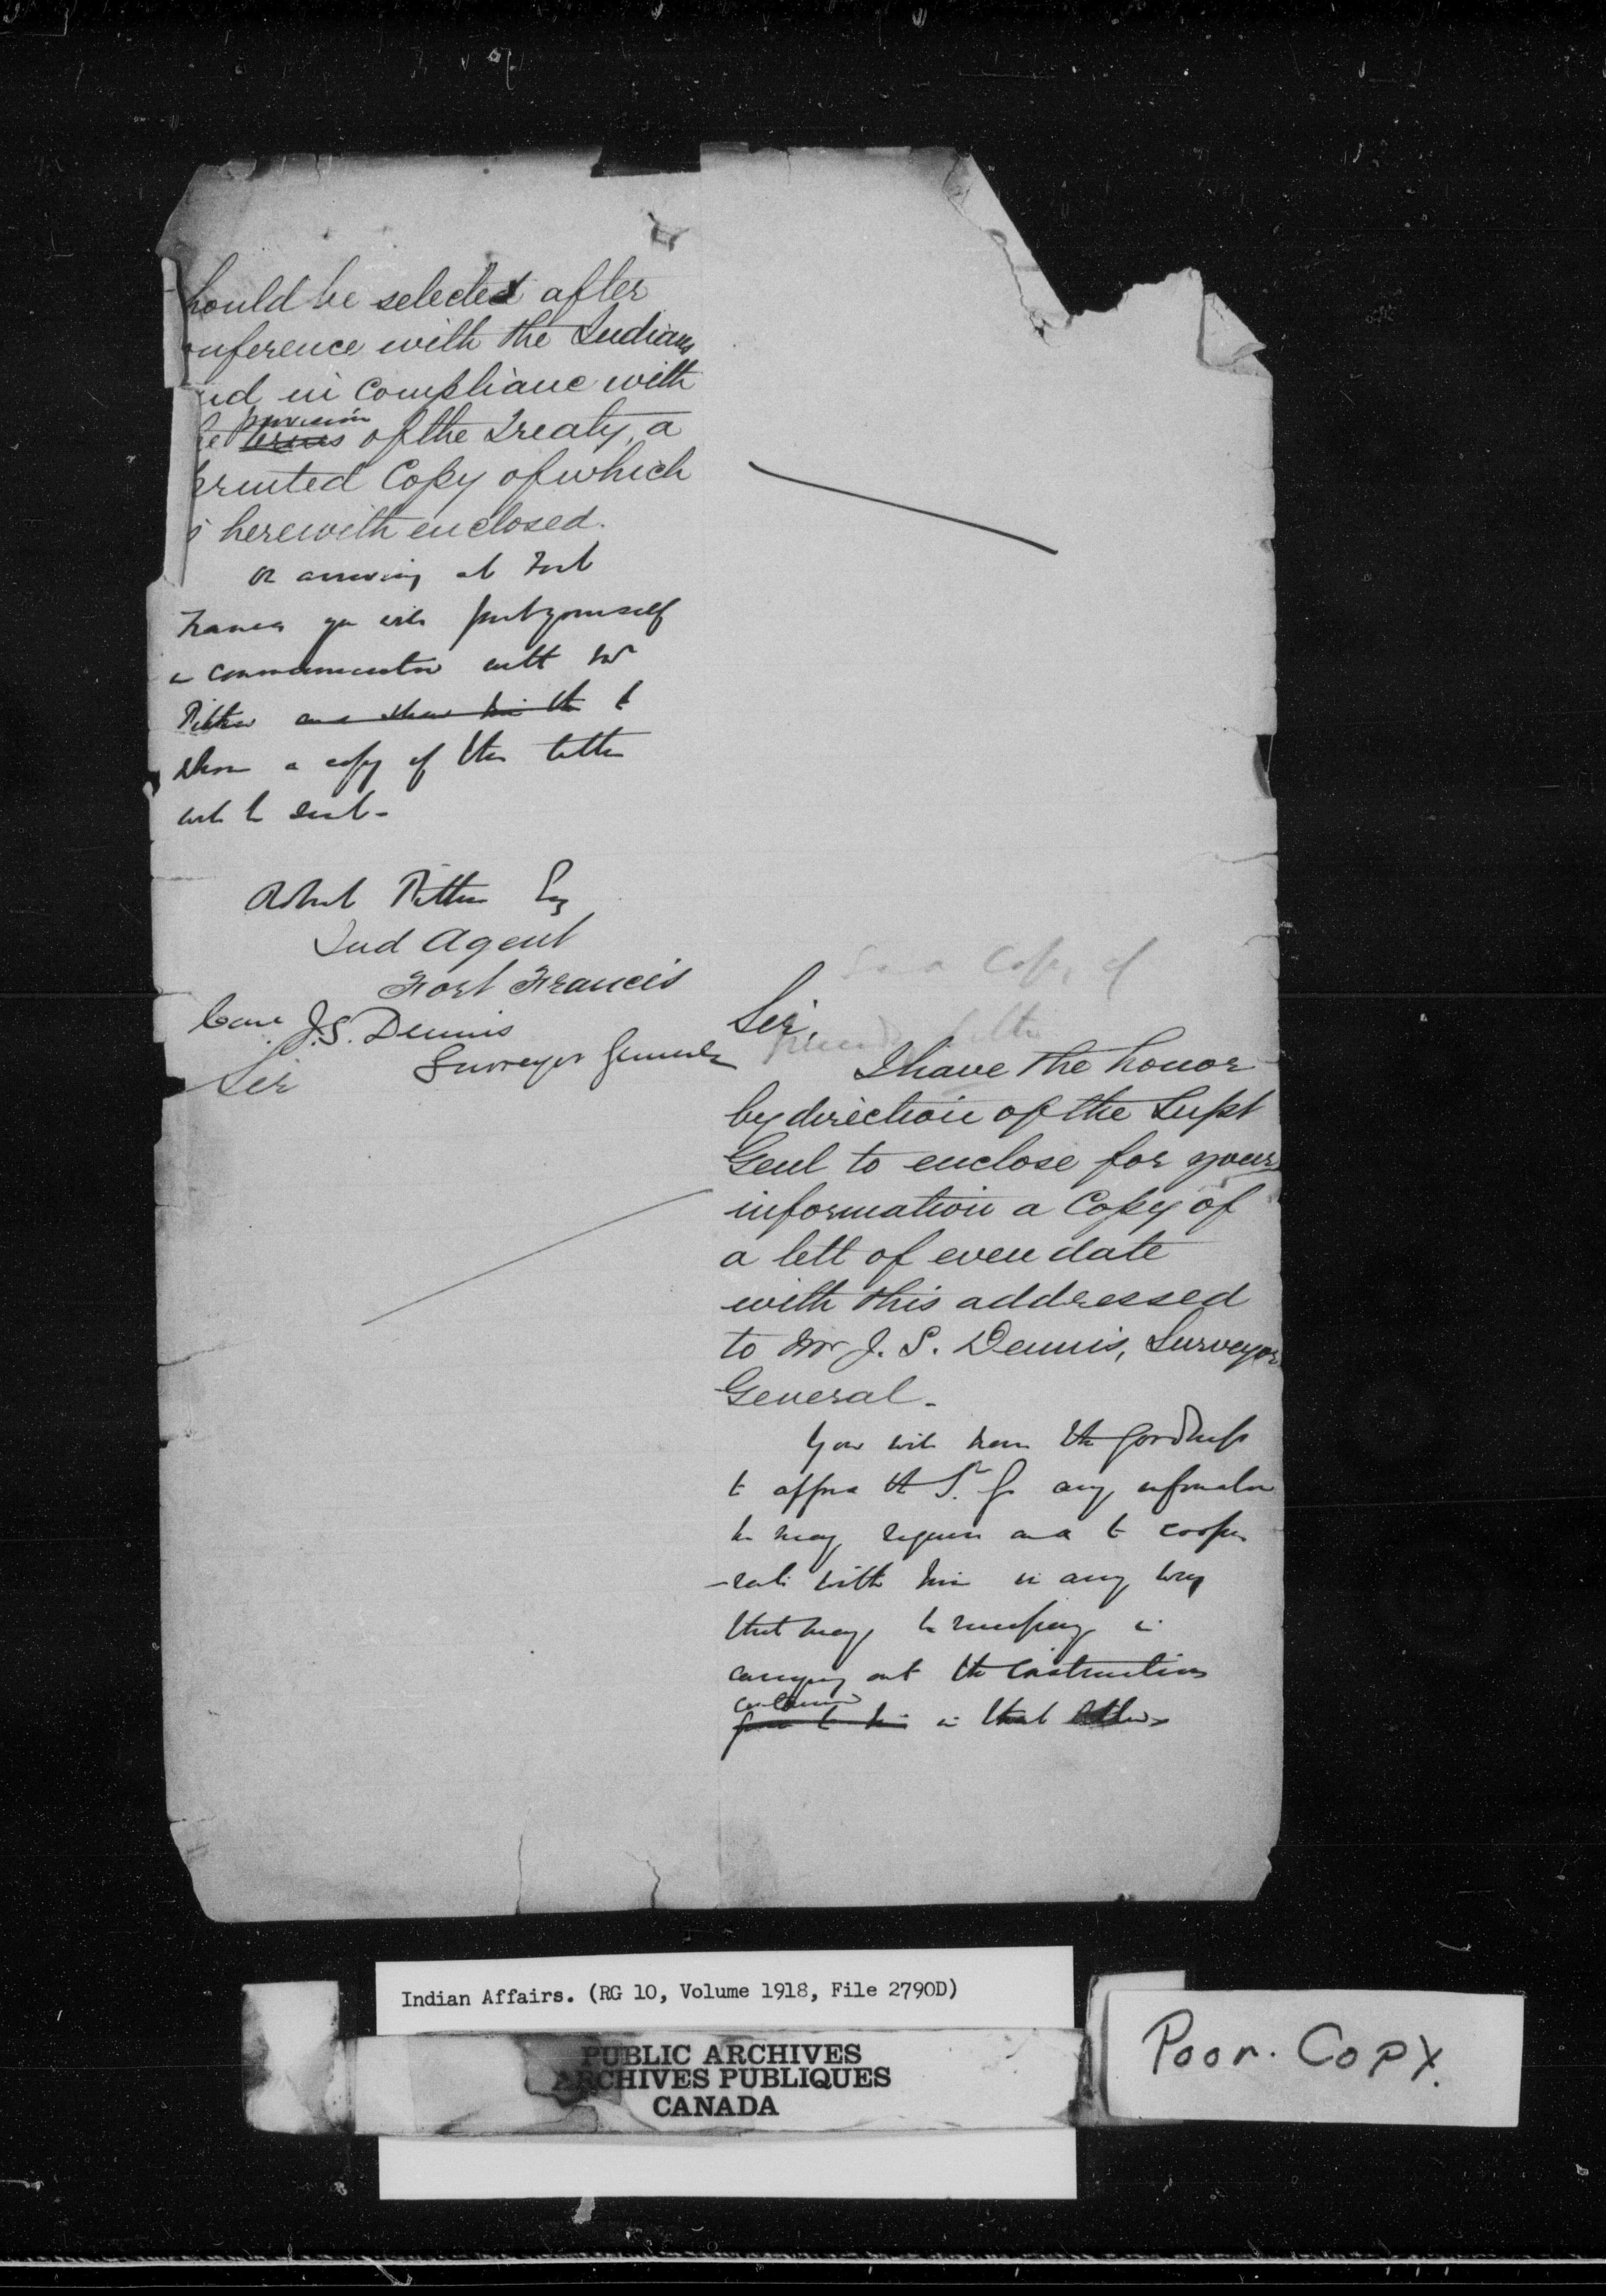 hould be selected after
onference with the Indians
nd in compliance with
provision
he terms of the Treaty, a
printed Copy of which
s herewith enclosed.
On arriving at Fort
Frances you will put yourself
in communication with Mr
Pither and show him the to
whom a copy of this letter
will be sent -
Robert Pither Esq
Ind Agent
Fort Francis
J.S. Dennis
Surveyor General
Sir
Copy of
Sir,
I have the honor
by direction of the Supt
Genl to enclose for your
information a Copy of
a lett of even date
with this addressed
to Mr J. S. Dennis, Surveyor
General -
You will have the goodness
to afford the S. G. any information
he may require and to coope
-rate with him in any way
that may be necessary in
carrying out the instructions
contained
given to him in that letter
Indian Affairs. (RG 10, Volume 1918, File 2790D)
PUBLIC ARCHIVES
ARCHIVES PUBLIQUES
CANADA
Poor. Copy.